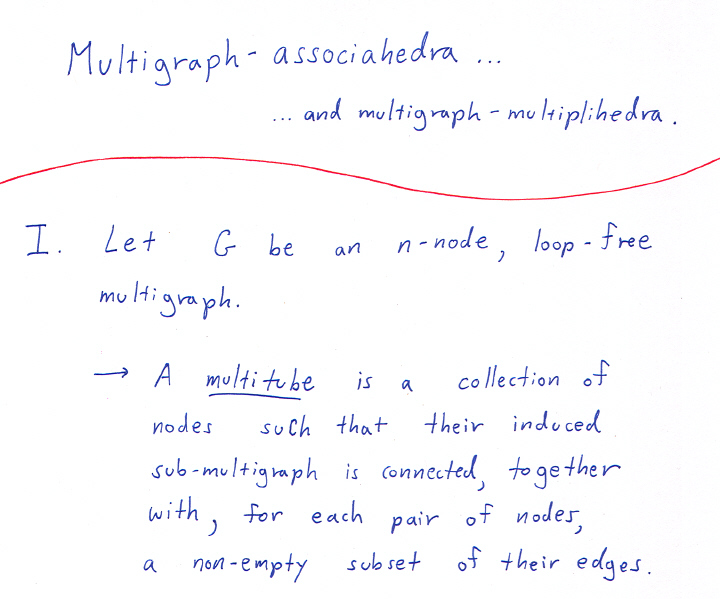 Multigraph - associahedra ...
... and multigraph - multiplihedra.
I. Let G be an n-node, loop-free
multigraph.
→ A multitube is a collection of
nodes such that their induced
sub-multigraph is connected, together
with, for each pair of nodes,
a non-empty subset of their edges.